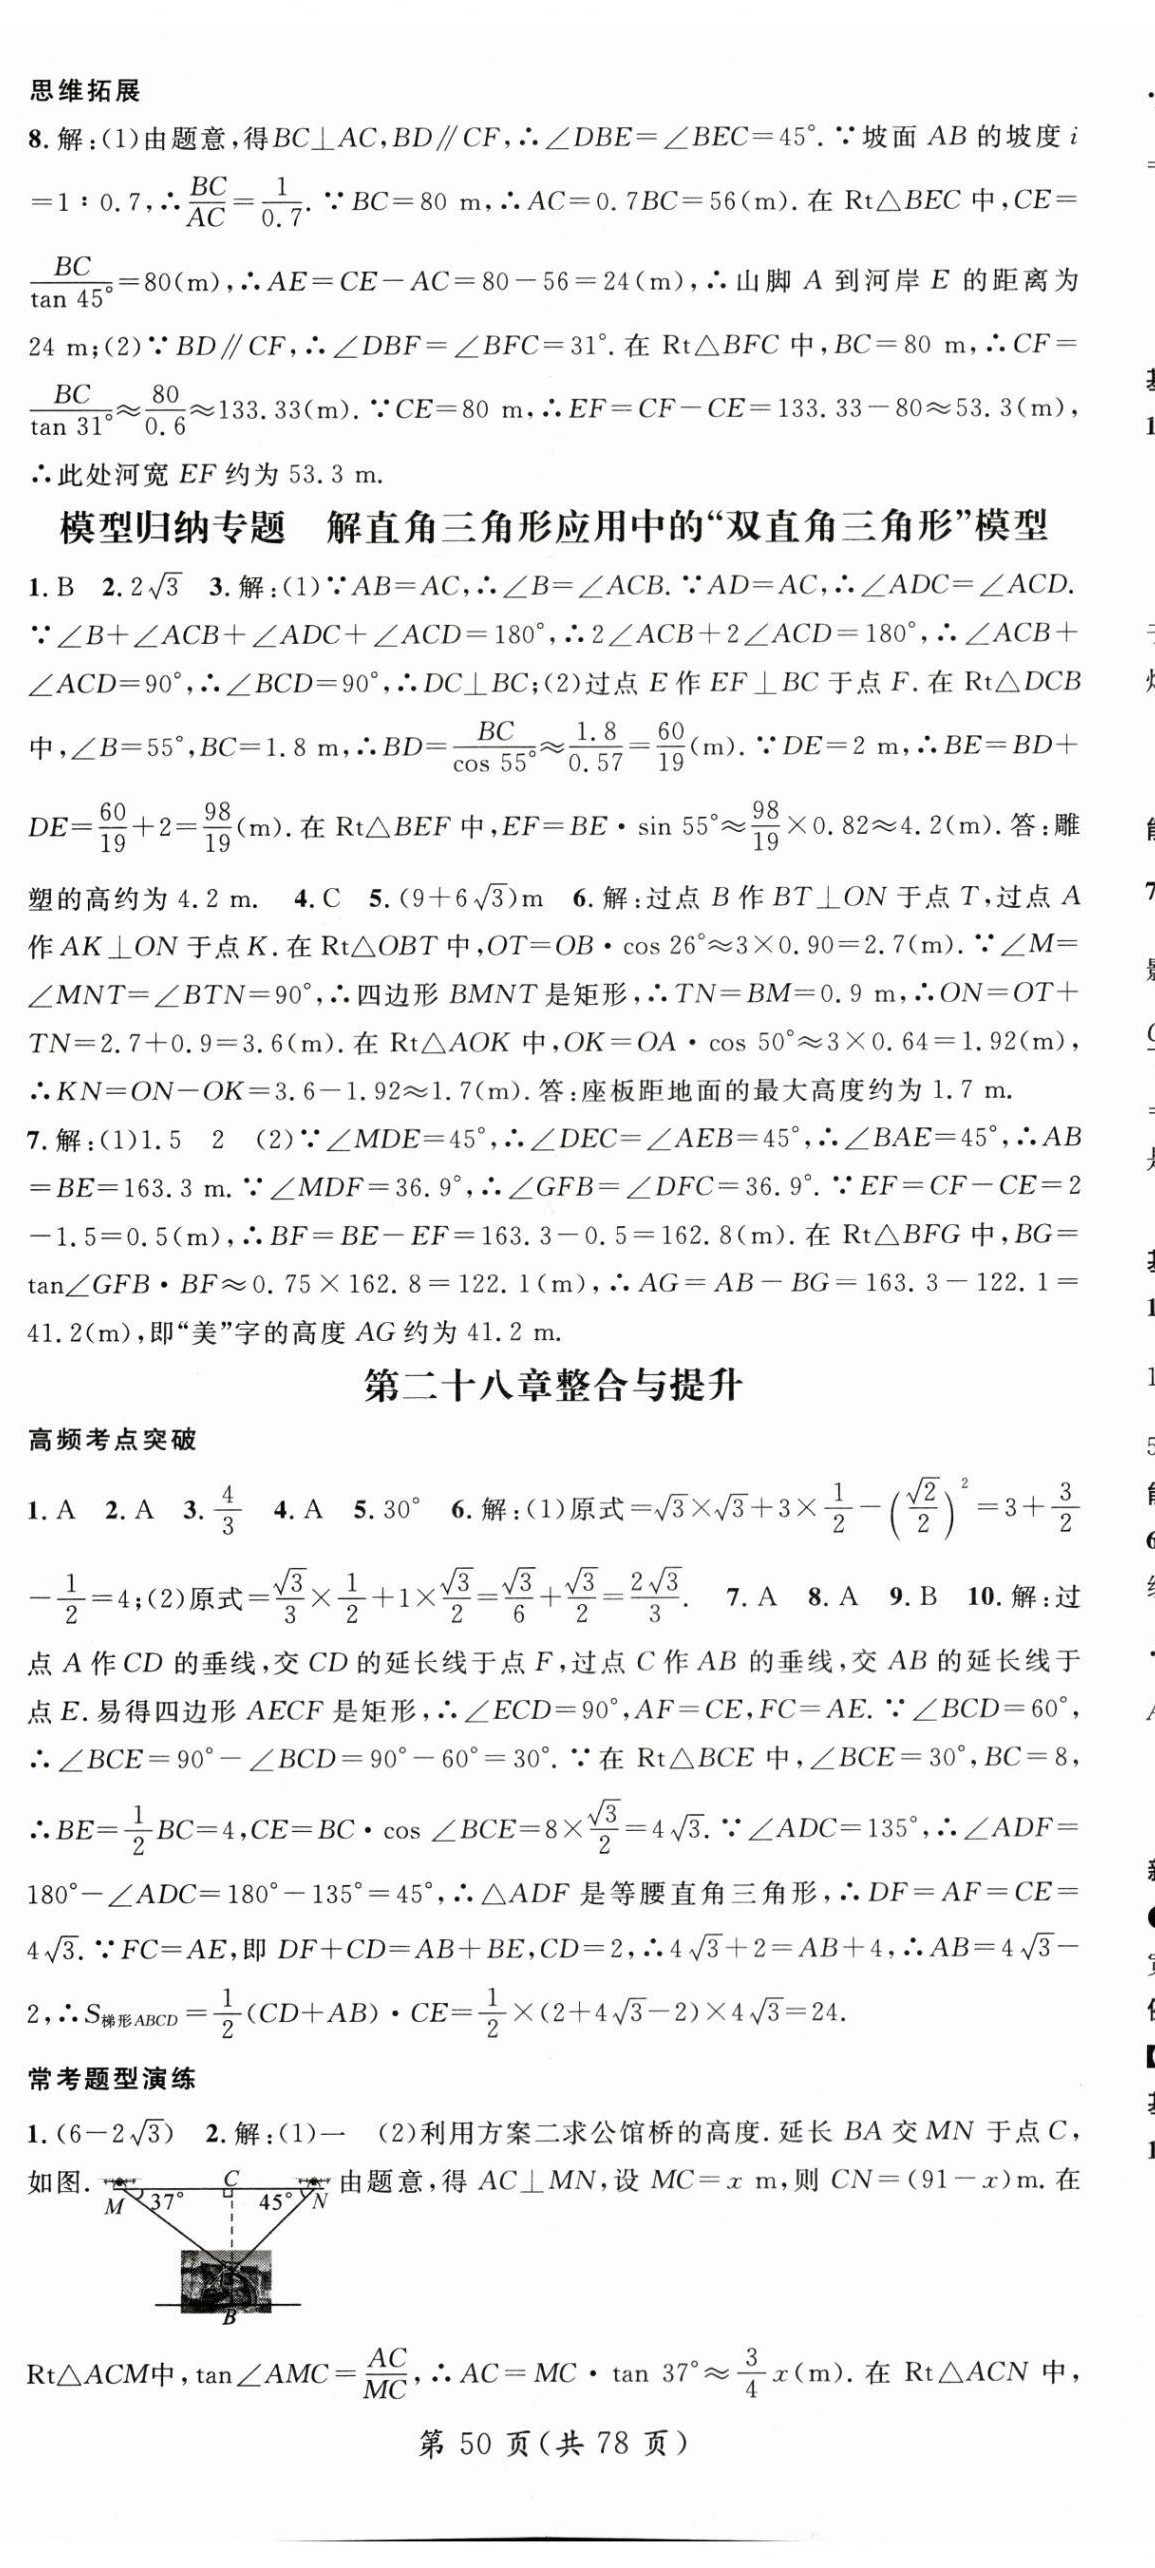 思维拓展
8. 解:(1)由题意,得BC⊥AC,BD∥CF,∴∠DBE=∠BEC=45°.∵坡面 AB 的坡度 i
=1∶0.7,∴BC/AC=1/0.7.∵BC=80 m,∴AC=0.7BC=56(m).在 Rt△BEC 中,CE=
BC/tan 45°=80(m),∴AE=CE-AC=80-56=24(m),∴山脚 A 到河岸 E 的距离为
24 m;(2)∵BD∥CF,∴∠DBF=∠BFC=31°.在 Rt△BFC 中,BC=80 m,∴CF=
BC/tan 31°≈80/0.6≈133.33(m).∵CE=80 m,∴EF=CF-CE=133.33-80≈53.3(m),
∴此处河宽 EF 约为 53.3 m.
模型归纳专题 解直角三角形应用中的“双直角三角形”模型
1. B 2. 2√3 3. 解:(1)∵AB=AC,∴∠B=∠ACB.∵AD=AC,∴∠ADC=∠ACD.
∵∠B+∠ACB+∠ADC+∠ACD=180°,∴2∠ACB+2∠ACD=180°,∴∠ACB+
∠ACD=90°,∴∠BCD=90°,∴DC⊥BC;(2)过点 E 作 EF⊥BC 于点 F.在 Rt△DCB
中,∠B=55°,BC=1.8 m,∴BD=BC/cos 55°≈1.8/0.57=60/19(m).∵DE=2 m,∴BE=BD+
DE=60/19+2=98/19(m).在 Rt△BEF 中,EF=BE·sin 55°≈98/19×0.82≈4.2(m).答:雕
塑的高约为 4.2 m. 4. C 5. (9+6√3)m 6. 解:过点 B 作 BT⊥ON 于点 T,过点 A
作 AK⊥ON 于点 K.在 Rt△OBT 中,OT=OB·cos 26°≈3×0.90=2.7(m).∵∠M=
∠MNT=∠BTN=90°,∴四边形 BMNT 是矩形,∴TN=BM=0.9 m,∴ON=OT+
TN=2.7+0.9=3.6(m).在 Rt△AOK 中,OK=OA·cos 50°≈3×0.64=1.92(m),
∴KN=ON-OK=3.6-1.92≈1.7(m).答:座板距地面的最大高度约为 1.7 m.
7. 解:(1)1.5 2 (2)∵∠MDE=45°,∴∠DEC=∠AEB=45°,∴∠BAE=45°,∴AB
=BE=163.3 m.∵∠MDF=36.9°,∴∠GFB=∠DFC=36.9°.∵EF=CF-CE=2
-1.5=0.5(m),∴BF=BE-EF=163.3-0.5=162.8(m).在 Rt△BFG 中,BG=
tan∠GFB·BF≈0.75×162.8=122.1(m),∴AG=AB-BG=163.3-122.1=
41.2(m),即“美”字的高度 AG 约为 41.2 m.
第二十八章整合与提升
高频考点突破
1. A 2. A 3. 4/3 4. A 5. 30° 6. 解:(1)原式=√3×√3+3×1/2-(√2/2)²=3+3/2
-1/2=4;(2)原式=√3/3×1/2+1×√3/2=√3/6+√3/2=2√3/3. 7. A 8. A 9. B 10. 解:过
点 A 作 CD 的垂线,交 CD 的延长线于点 F,过点 C 作 AB 的垂线,交 AB 的延长线于
点 E.易得四边形 AECF 是矩形,∴∠ECD=90°,AF=CE,FC=AE.∵∠BCD=60°,
∴∠BCE=90°-∠BCD=90°-60°=30°.∵在 Rt△BCE 中,∠BCE=30°,BC=8,
∴BE=1/2BC=4,CE=BC·cos ∠BCE=8×√3/2=4√3.∵∠ADC=135°,∴∠ADF=
180°-∠ADC=180°-135°=45°,∴△ADF 是等腰直角三角形,∴DF=AF=CE=
4√3.∵FC=AE,即 DF+CD=AB+BE,CD=2,∴4√3+2=AB+4,∴AB=4√3-
2,∴S梯形ABCD=1/2(CD+AB)·CE=1/2×(2+4√3-2)×4√3=24.
常考题型演练
1. (6-2√3) 2. 解:(1)一 (2)利用方案二求公馆桥的高度.延长 BA 交 MN 于点 C,
如图. M 37° C 45° N B 由题意,得 AC⊥MN,设 MC=x m,则 CN=(91-x)m.在
Rt△ACM中,tan∠AMC=AC/MC,∴AC=MC·tan 37°≈3/4x(m).在 Rt△ACN 中,
第 50 页(共 78 页)